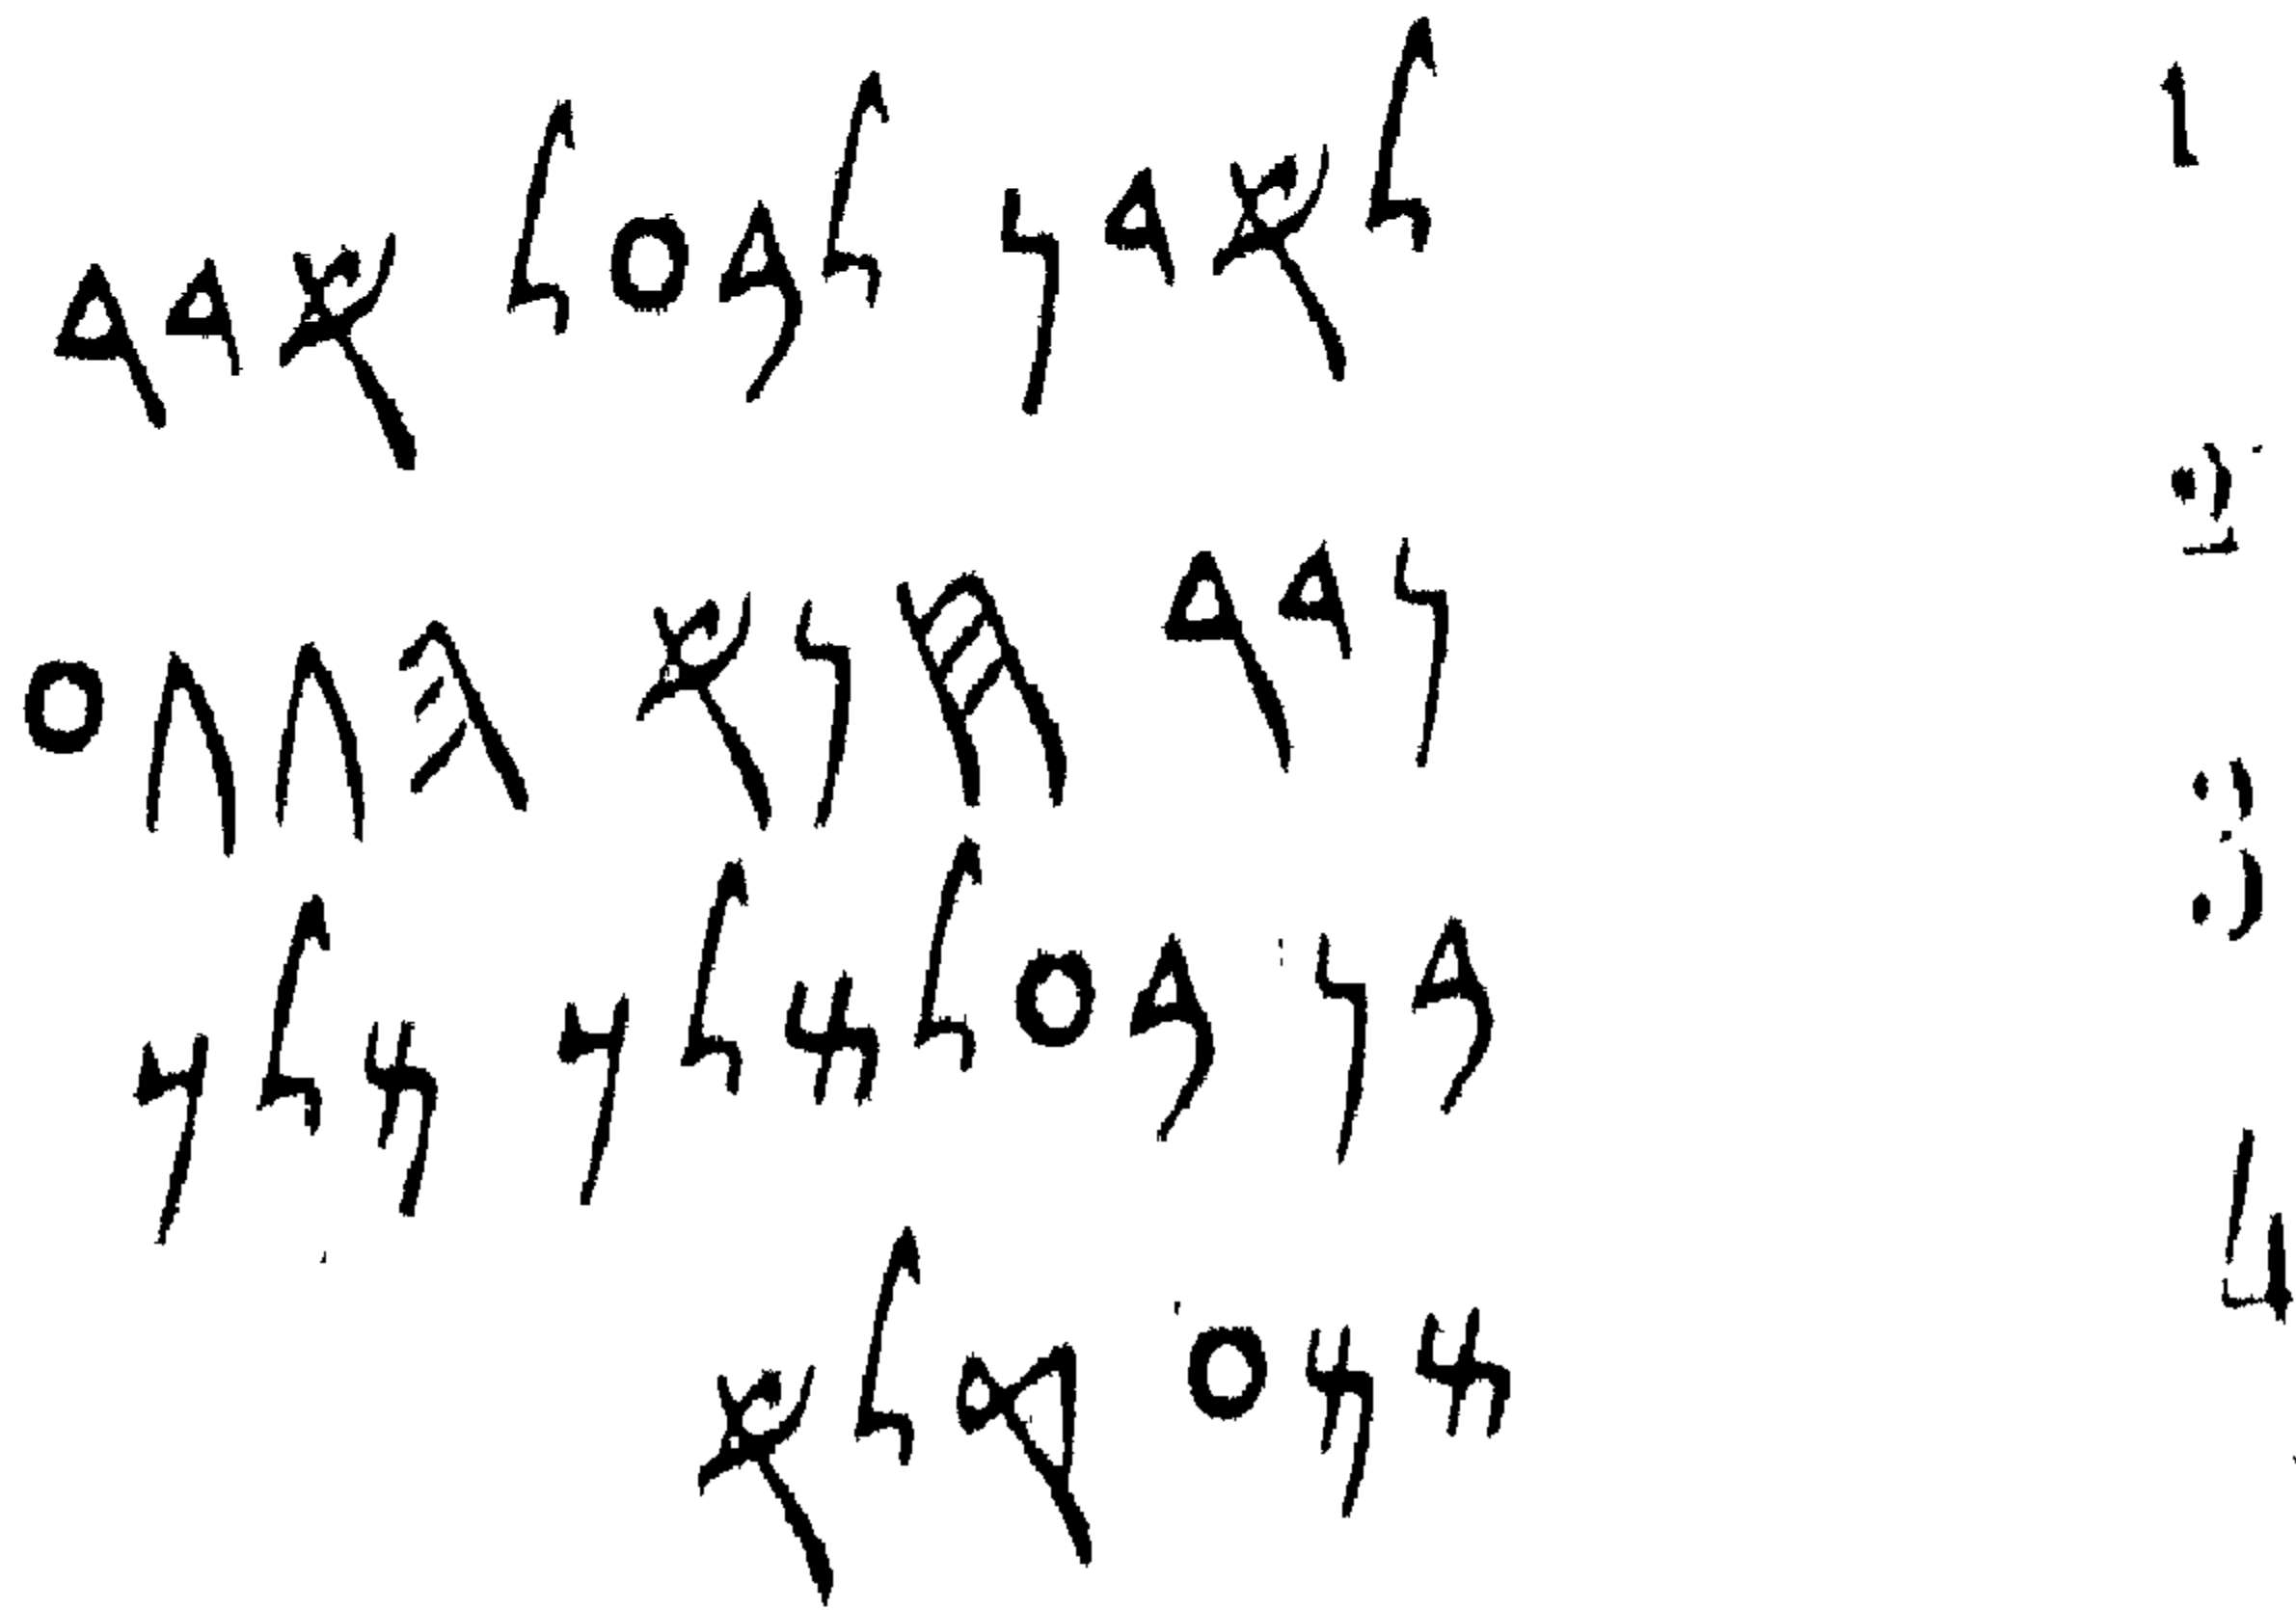 1 𐤋𐤀𐤃𐤍 𐤋𐤁𐤏𐤋 𐤀𐤃𐤓
2 𐤍𐤃𐤓 𐤇𐤍𐤀 𐤄𐤂𐤂𐤏
3 𐤁𐤍 𐤁𐤏𐤋𐤔𐤋𐤊 𐤌𐤋𐤊
4 𐤔𐤌𐤏 𐤒𐤋𐤀